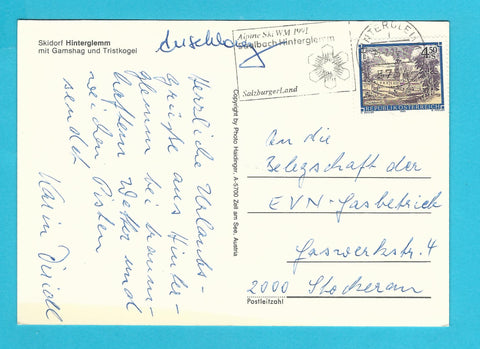 Skidorf Hinterglemm
mit Gamshag und Tristkogel
Anschlag
Alpine Ski WM 1991
Saalbach Hinterglemm
SalzburgerLand
HINTERGLEMM
4.50
REPUBLIK ÖSTERREICH
Herrliche Urlaubs-
grüße aus Hinter-
glemm bei traum-
haftem Wetter und
weichen Pisten
sendet
Karin
Copyright by Photo Haidinger, A-5700 Zell am See, Austria
An die
Belegschaft der
EVN-Gasbetrieb
Gaswerkstr. 4
2000 Stockerau
Postleitzahl